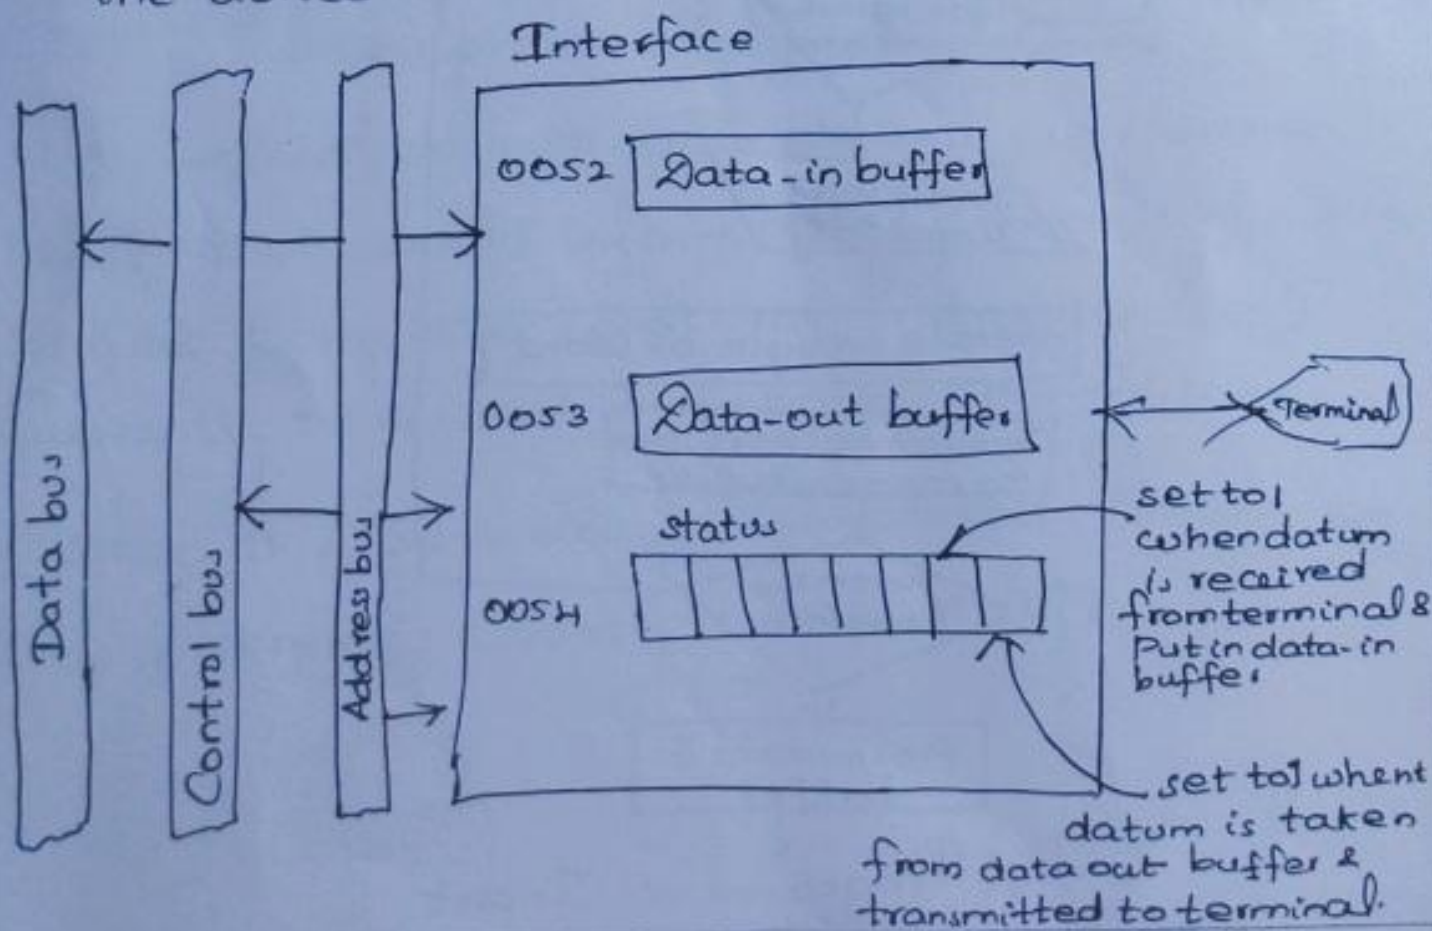 Interface
Data bus
Control bus
Address bus
0052 Data-in buffer
0053 Data-out buffer
Terminal
status
0054
set to 1
when datum
is received
from terminal &
Put in data-in
buffer
set to 1 when
datum is taken
from data out buffer &
transmitted to terminal.